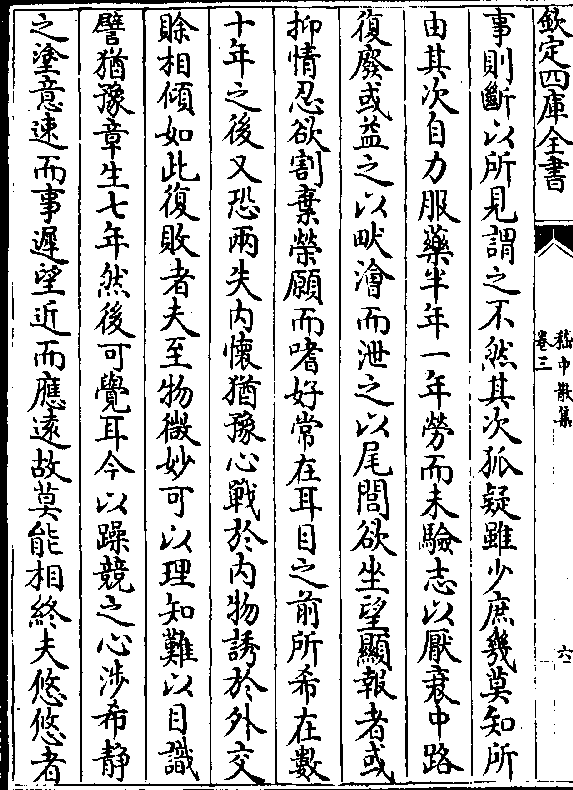 欽定四庫全書
嵇中散集
卷三
六
事則斷以所見謂之不然其次狐疑雖少庶幾莫知所
由其次自力服藥半年一年勞而未驗志以厭衰中路
復廢或益之以畎澮而泄之以尾閭欲坐望顯報者或
抑情忍欲割棄榮願而嗜好常在耳目之前所希在數
十年之後又恐兩失内懷猶豫心戰於内物誘於外交
賒相傾如此復敗者夫至物微妙可以理知難以目識
譬猶豫章生七年然後可覺耳今以躁競之心渉希靜
之塗意速而事遲望近而應逺故莫能相終夫悠悠者